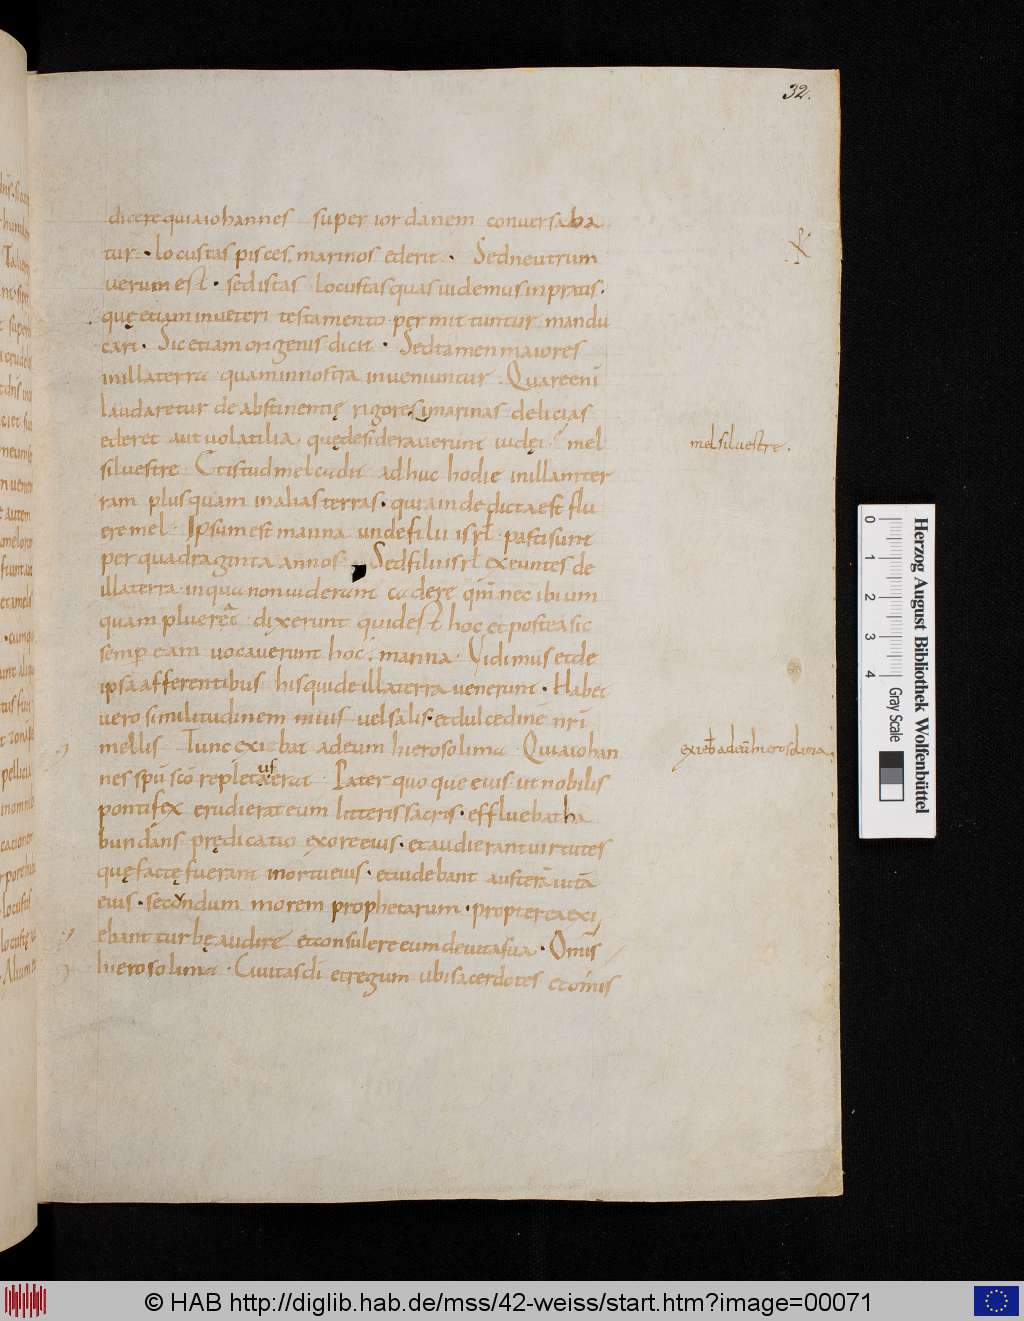 32.
dicere quia iohannes super iordanem conversaba
tur · locustas pisces marinos ederit · Sed neutrum
verum est · sed istas locustas quas videmus in pratis ·
quę etiam in veteri testamento permittuntur mandu
cari · Sic etiam origenis dicit · Sed tamen maiores
in illa terra quam in nostra inveniuntur · Quare eni
laudaretur de abstinentię rigore si marinas delicias
ederet aut volatilia quę desideraverunt iudęi · mel
silvestre · Et istud mel cadit adhuc hodie in illam ter
ram plusquam in alias terras · quia inde dicta est flu
ere mel · Ipsum est manna unde filii isrł pasti sunt
per quadraginta annos · Sed filii isrł exeuntes de
illa terra in qua non viderunt cadere qm̄ nec ibi um
quam plueret dixerunt quid est hoc et postea sic
semp eam vocaverunt hoc : manna · Vidimus et de
ipsa afferentibus his qui de illa terra venerunt · Habet
vero similitudinem nivis vel salis · et dulcedinē nr̄i
mellis Tunc exiebat ad eum hierosolima · Quia iohan
nes spū scō repletus erat · Pater quoque eius ut nobilis
pontifex erudierat eum litteris sacris · effluebat ha
bundans prędicatio ex ore eius · et audierant virtutes
quę factę fuerant in ortu eius · et videbant austerā vitā
eius · secundum morem prophetarum · propterea exi
ebant turbę audire et consulere eum de vita sua · Om̄is
hierosolima · Civitas di et regum ubi sacerdotes et om̄is
mel silvestre ·
exieb ad eū hierosolima ·
0 1 2 3 4
Herzog August Bibliothek Wolfenbüttel
Gray Scale
© HAB http://diglib.hab.de/mss/42-weiss/start.htm?image=00071